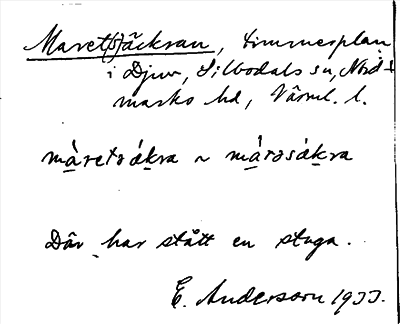 Maret(s)åckran, timmerplan
i Djuv, Silbodals sn, Nord-
marks hd, Värml. l.
màretsákra ~ mårəsákra
Där har stått en stuga.
E. Anderson 1933.